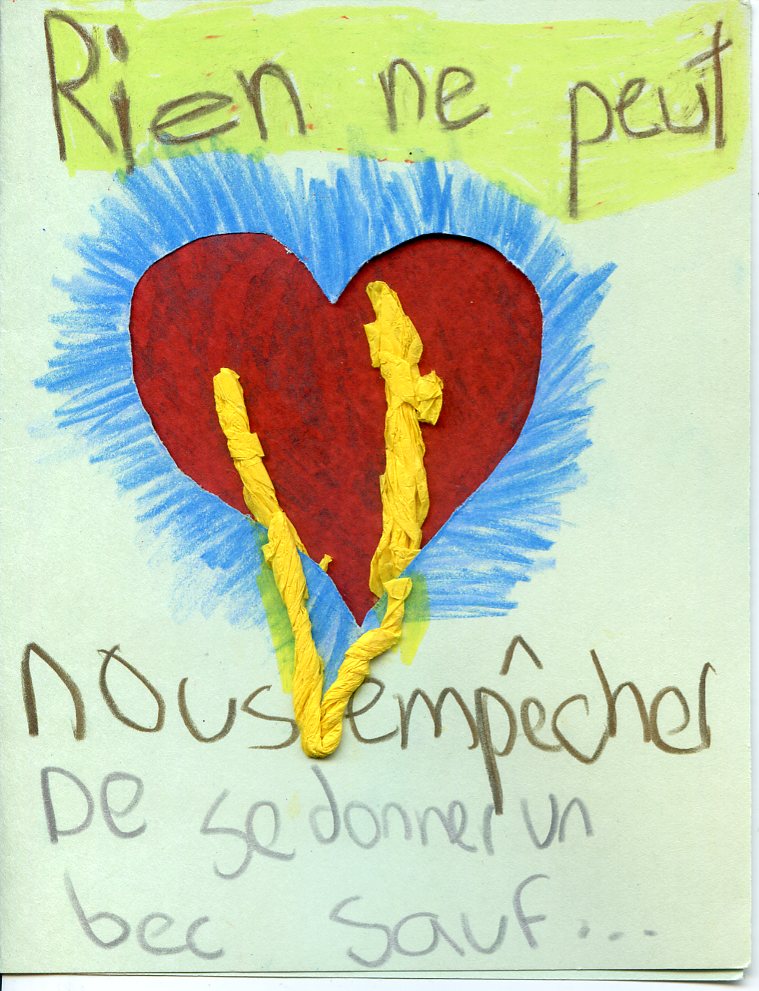 Rien ne peut
nous empêcher
De se donner un
bec sauf...